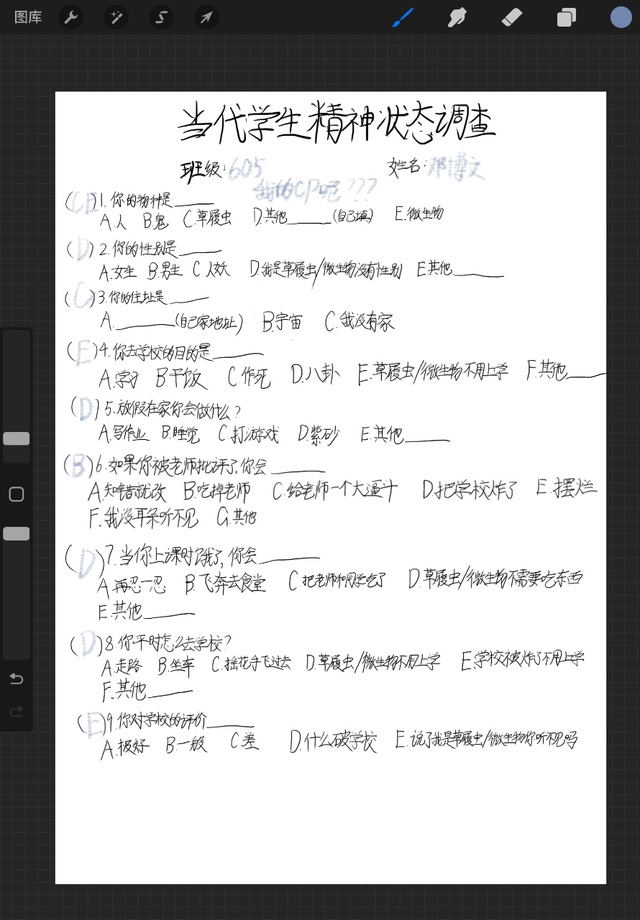 图库
当代学生精神状态调查
班级:605 姓名:邓博文
我的CP呢???
(CE)1.你的物种是____
A.人 B.鬼 C.草履虫 D.其他____(自己填) E.微生物
(D)2.你的性别是____
A.女生 B.男生 C人妖 D.我是草履虫/微生物没有性别 E其他____
(C)3.你的住址是____
A.____(自己家地址) B.宇宙 C.我没有家
(E)4.你去学校的目的是____
A.学习 B.干饭 C.作死 D.八卦 E.草履虫/微生物不用上学 F.其他____
(D)5.放假在家你会做什么?
A.写作业 B.睡觉 C打游戏 D.紫砂 E.其他____
(B)6.如果你被老师批评了,你会____
A.知错就改 B.吃掉老师 C.给老师一个大逼斗 D.把学校炸了 E.摆烂
F.我没耳朵听不见 G.其他
(D)7.当你上课时饿了,你会____
A.再忍一忍 B.飞奔去食堂 C把老师和同学吃了 D.草履虫/微生物不需要吃东西
E.其他____
(D)8你平时怎么去学校?
A.走路 B.坐车 C.摇花手飞过去 D草履虫/微生物不用上学 E学校被炸了不用上学
F.其他____
(E)9.你对学校的评价____
A.极好 B.一般 C差 D.什么破学校 E.说了我是草履虫/微生物你听不见吗